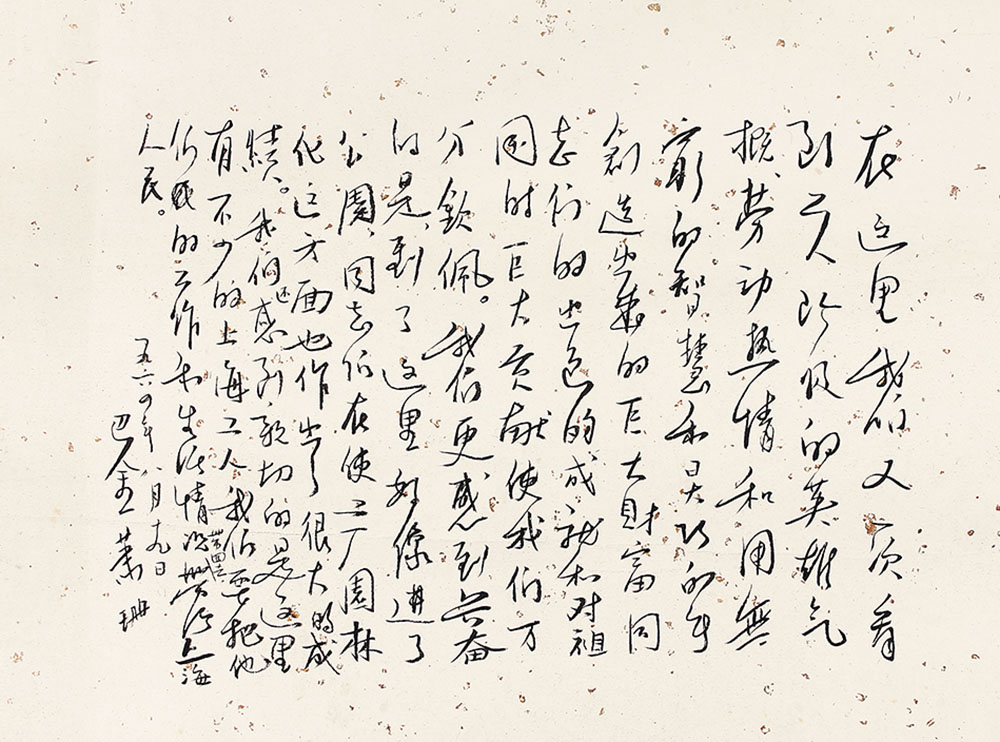 在这里我们又一次看
到工人阶级的英雄气
概、劳动热情和用無
窮的智慧和灵巧的手
創造出来的巨大財富同
志们的出色的成就和对祖
国的巨大贡献使我们万
分欽佩。我们更感到兴奋
的是,到了这里好像进了
公園,同志们在使工厂園林
化这方面也作出了很大的成
績。我们还感到亲切的是这里
有不少的上海工人我们要把他
们的工作和生活情况带给上海
人民。
一九六〇年八月九日
巴金 萧珊